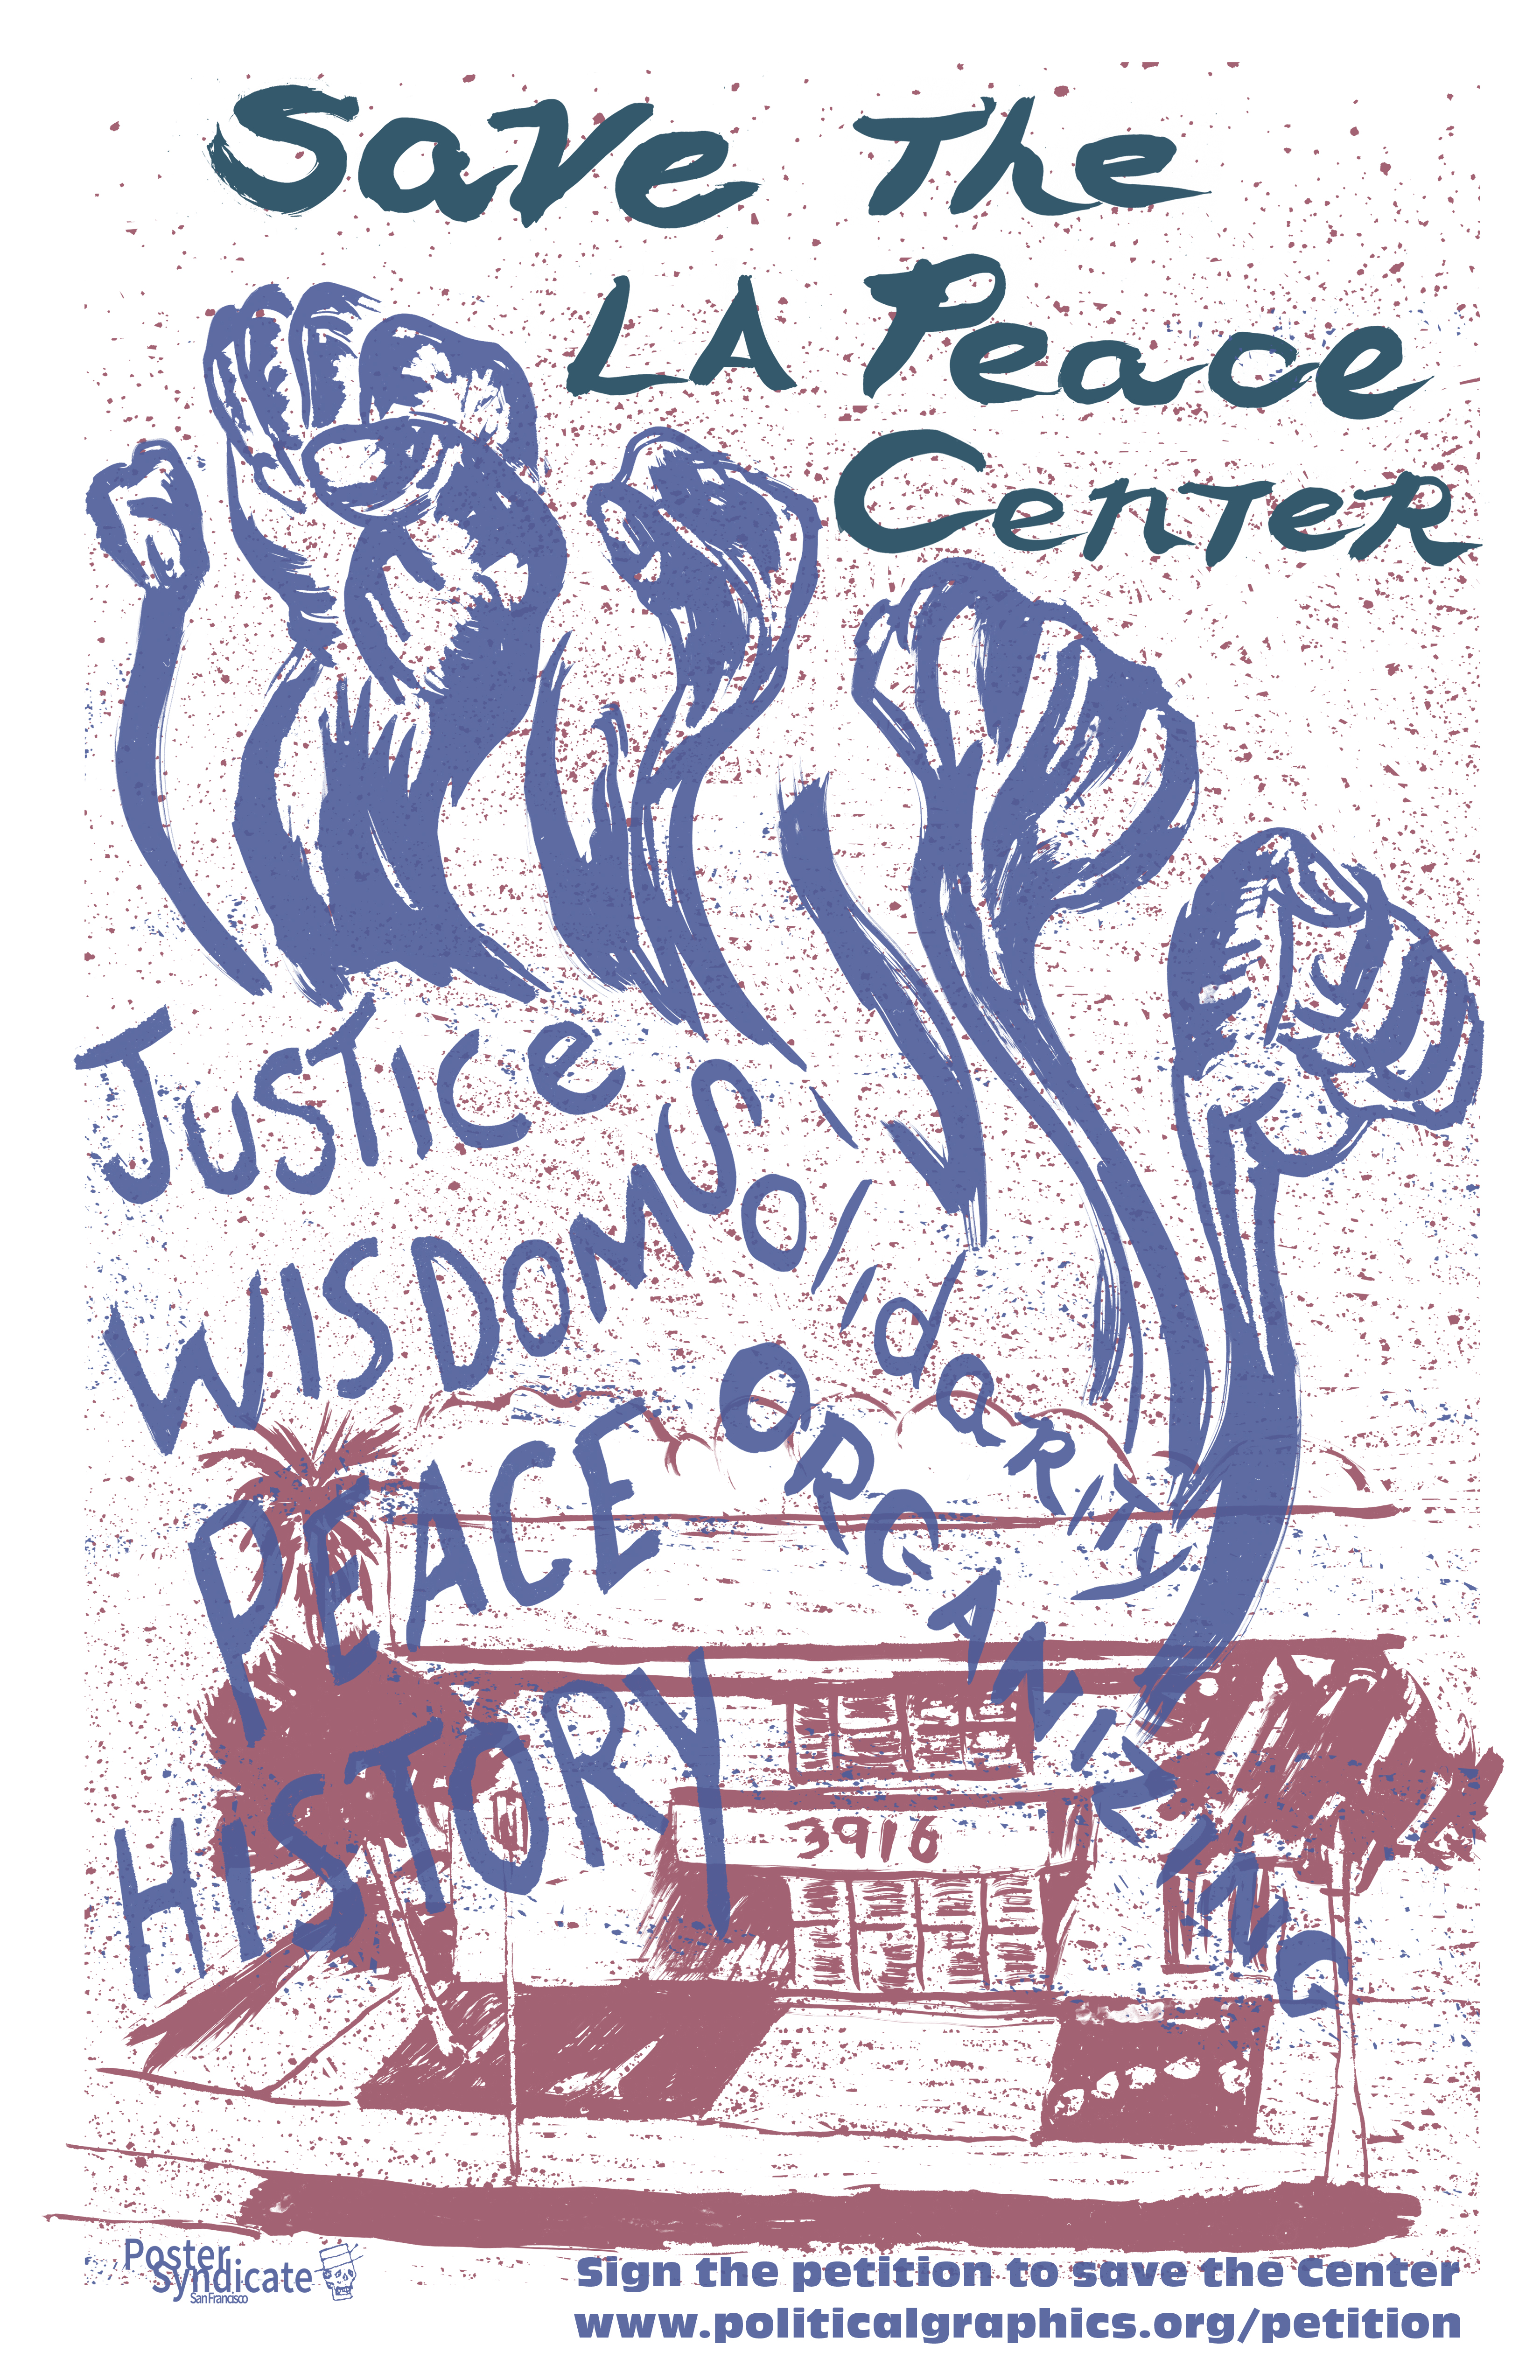 Save The
LA Peace
Center
Justice
WISDOM
Solidarity
PEACE
ORGANIZING
HISTORY
3916
Poster
Syndicate
San Francisco
Sign the petition to save the Center
www.politicalgraphics.org/petition